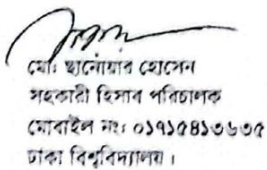 মো: ছানোয়ার হোসেন
সহকারী হিসাব পরিচালক
মোবাইল নং: ০১৭১৫৪১৩৬৩৫
ঢাকা বিশ্ববিদ্যালয়।